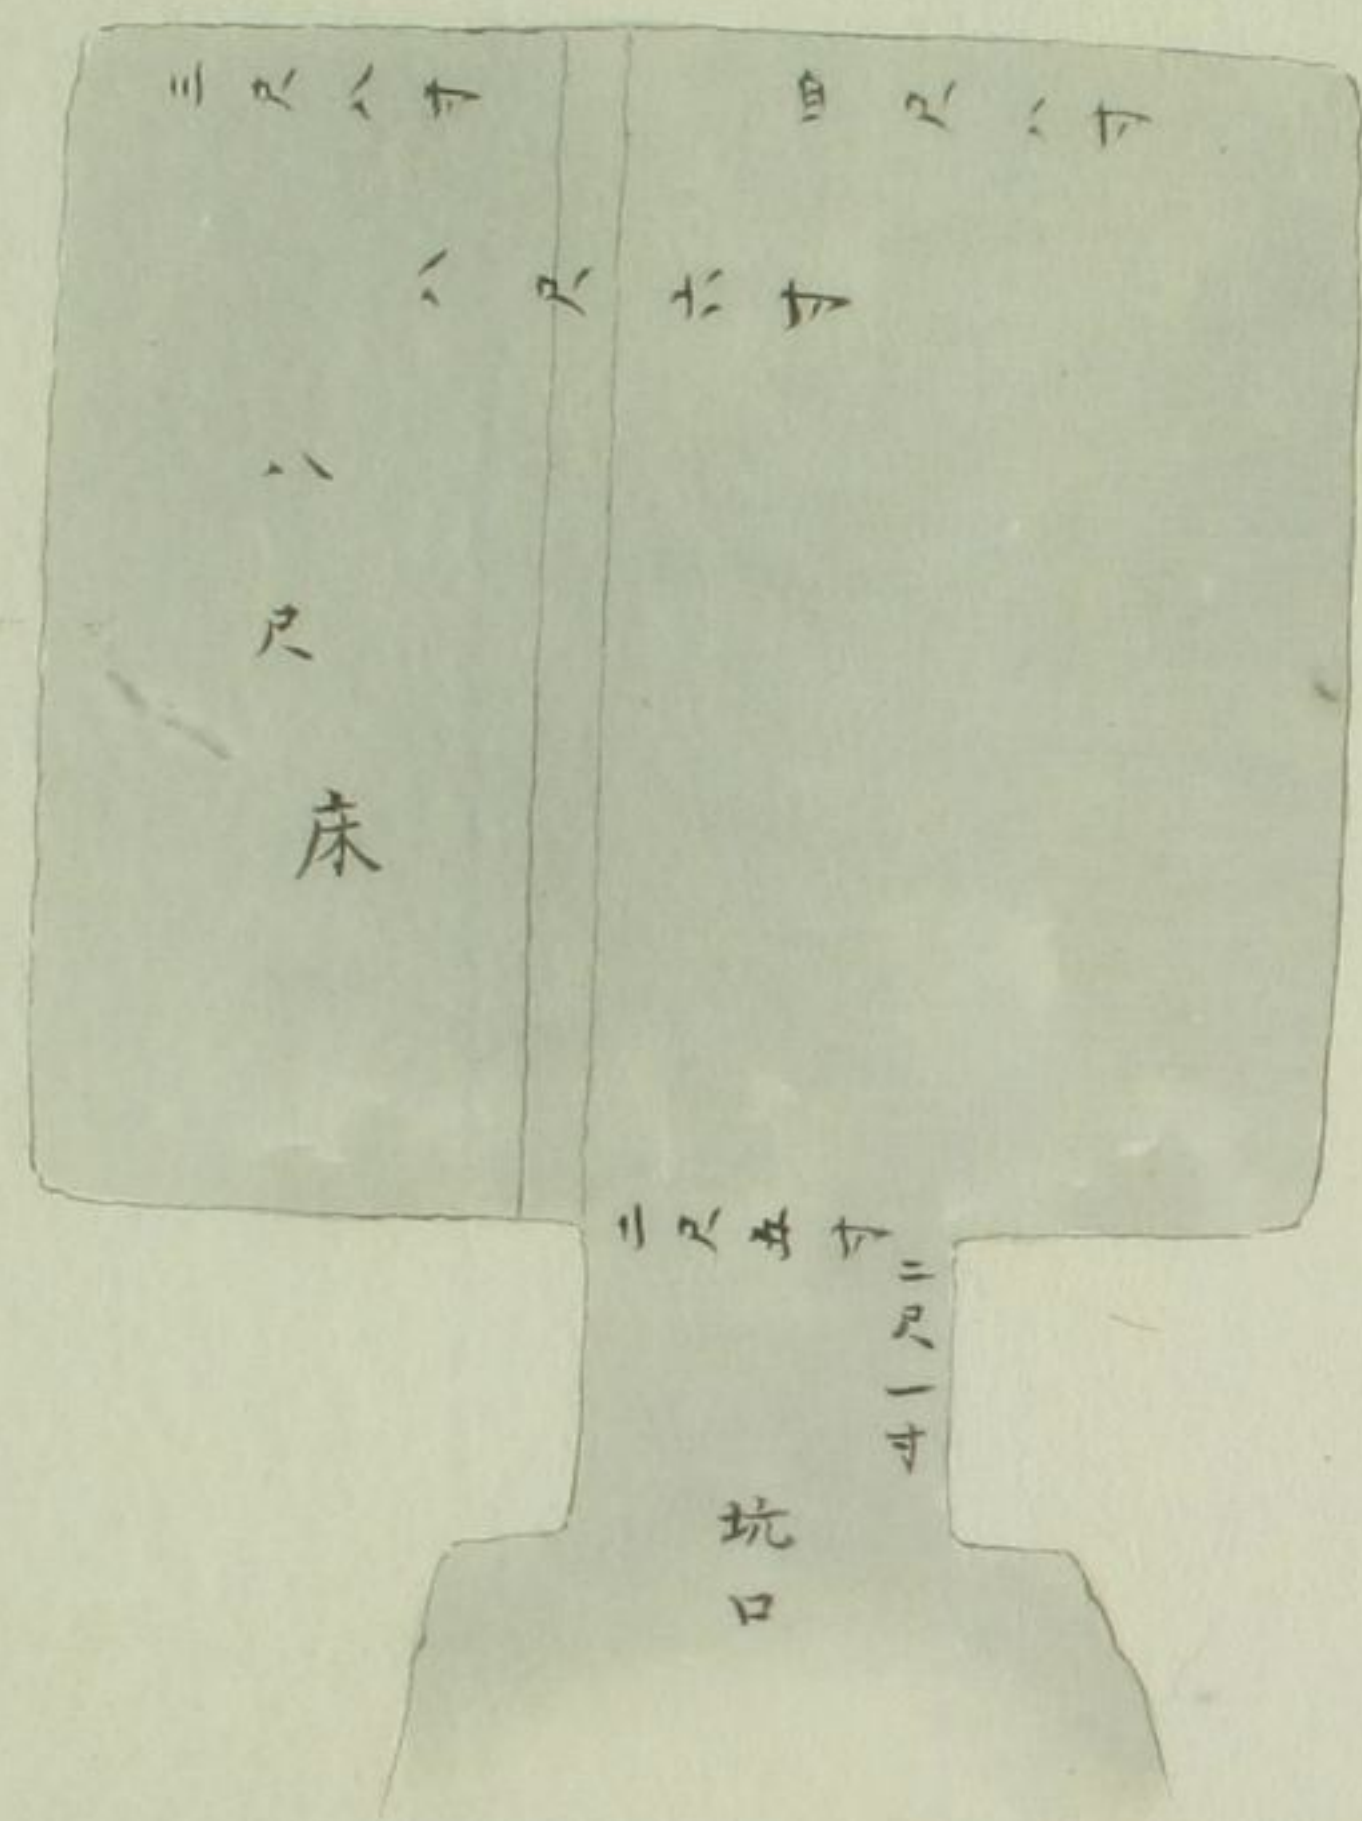 三尺八寸
四尺八寸
八尺六寸
八尺
床
二尺五寸
二尺一寸
坑口